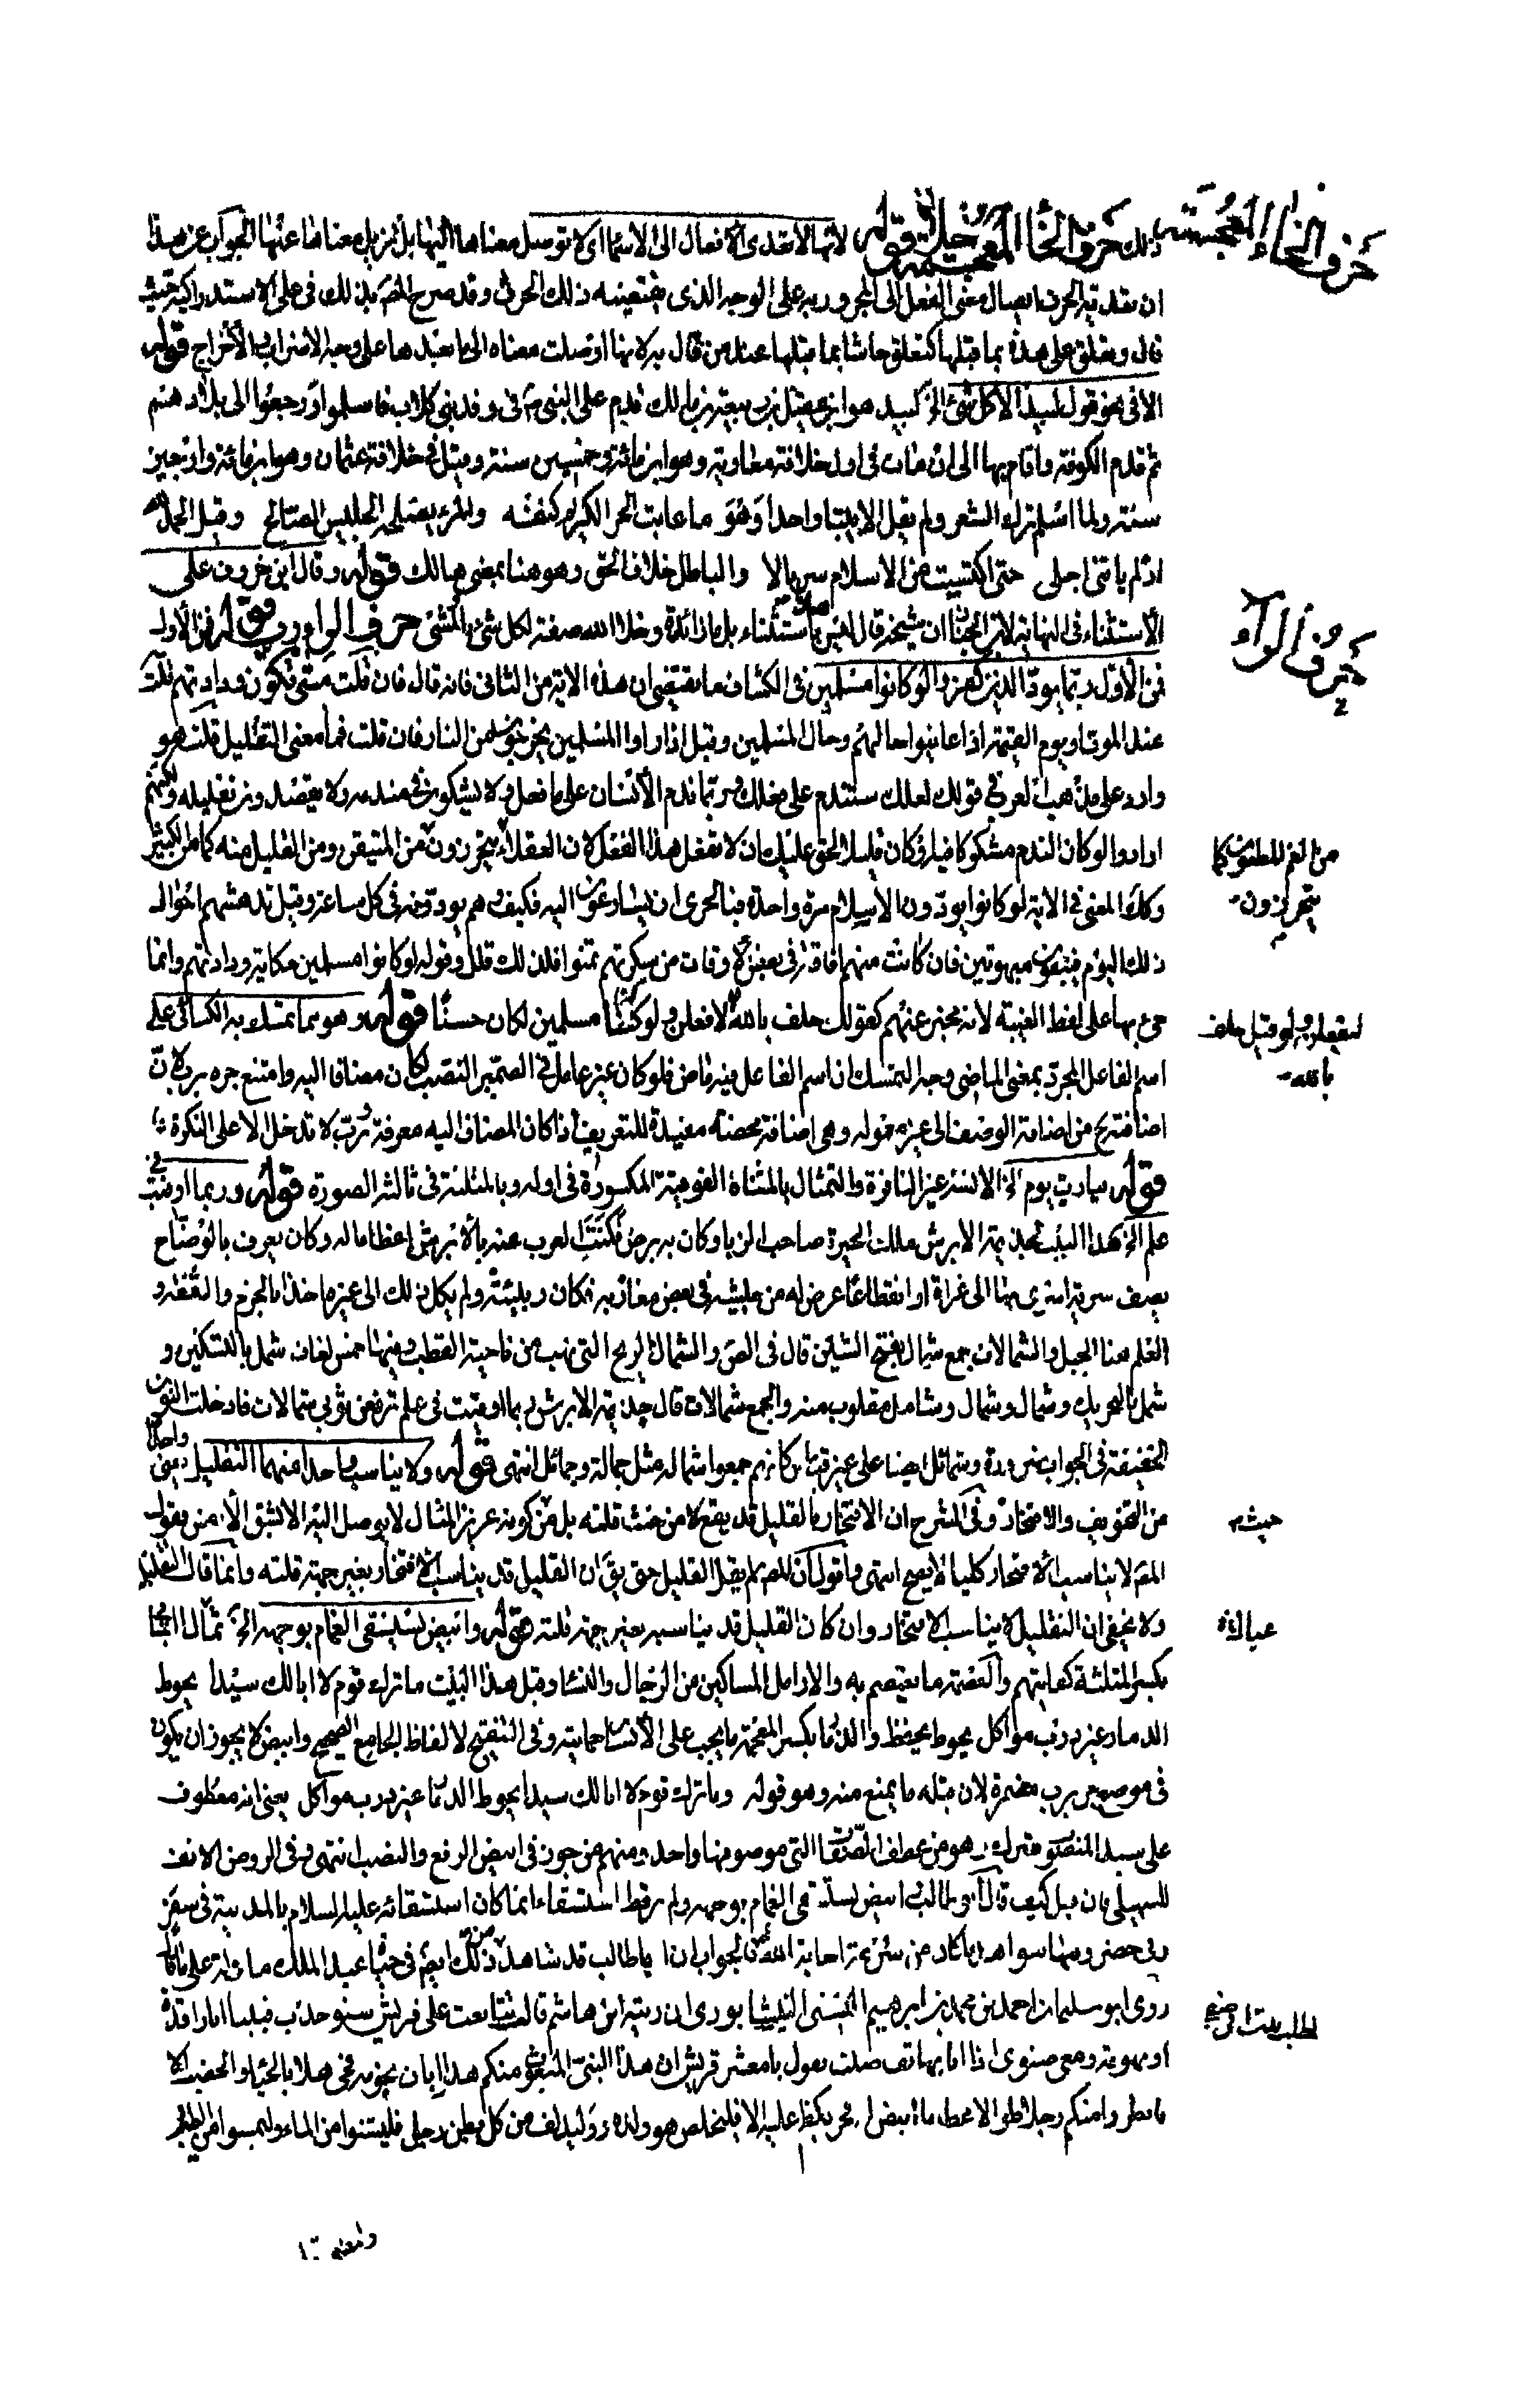 حرف الخاء المعجمة
ذلك حرف الخا المعجمة خلا قوله لانها لا تعدى الافعال الى الاسما اى لا توصل معناها اليها بل تزيل معناها عنها الجواب عن هذا
ان تعدية الحرف ايصال معنى الفعل الى المجرور به على الوجه الذى يقتضيه ذلك الحرف وقد صرح المص بذلك فى على الاستدراكية حيث
قال وتعلق على هذه بما قبلها كتعلق حاشا بما قبلها عند من قال به لانها اوصلت معناه الى ما بعدها على وجه الاضراب والاخراج قوله
الا فى نحو قول لبيد الا كل شئ الخ لبيد هو ابن عقيل بن ربيعة بن مالك قدم على النبى م فى وفد بنى كلاب فاسلموا ورجعوا الى بلادهم
ثم قدم الكوفة واقام بها الى ان مات فى اول خلافة معاوية وهو ابن مائة وخمسين سنة وقيل فى خلافة عثمان وهو ابن مائة واربعين
سنة ولما اسلم ترك الشعر ولم يقل الا بيتا واحدا وهو ما عاتب الحر الكريم كنفسه والمرء يصلحه الجليس الصالح وقيل الحمد لله
اذ لم ياتنى اجلى حتى اكتسيت من الاسلام سربالا والباطل خلاف الحق وهو هنا بمعنى هالك قوله وقال ابن خروف على
الاستثناء فى النهاية لابن الخباز ان شيخه قال ليس باستثناء بل ما زائدة وخلا الله صفة لكل شئ المثنى حرف الواو رب قوله فمن الاول
حرف الراء
فمن الاول ربما يود الذين كفروا لو كانوا مسلمين فى الكشاف ما يقتضى ان هذه الاية من الثانى فانه قال فان قلت متى تكون ودادتهم قلت
عند الموت او يوم القيمة اذا عاينوا حالهم وحال المسلمين وقيل اذا راوا المسلمين يخرجون من النار فان قلت فما معنى التقليل قلت هو
وارد على مذهب العرب فى قولك لعلك ستندم على فعلك وربما ندم الانسان على ما فعل ولا يشكون فى تندمه ولا يقصدون تقليله ولكنهم
ارادوا لو كان الندم مشكوكا فيه او كان قليلا لحق عليك ان لا تفعل هذا الفعل لان العقلاء يتحرزون من المتيقن ومن القليل منه كما من الكثير
من الغم المظنون كما
يتحرزون
وكذا المعنى فى الاية لو كانوا يودون الاسلام مرة واحدة فبالحرى ان يسارعون اليه فكيف وهم يودونه فى كل ساعة وقيل تدهشهم احوال
ذلك اليوم فيبقون مبهوتين فان كانت منهم افاقة فى بعض الاوقات من سكرتهم تمنوا فلذلك قلل وقوله لو كانوا مسلمين حكاية ودادتهم وانما
جئ بها على لفظ الغيبة لانه مخبر عنهم كقولك حلف بالله لافعلن ولو كنا مسلمين لكان حسنا قوله وهو مما تمسك به الكسائى على
ليفعلن ولو قيل حلف
بالله
اسم الفاعل المجرد بمعنى الماضى وجه التمسك ان اسم الفاعل فيه ماض فلو كان غير عامل فى الضمير النصب لكان مضافا اليه وامتنع جره برب لان
اضافته ح من اضافة الوصف الى غير معموله وهى اضافة محضة مفيدة للتعريف اذا كان المضاف اليه معرفة ورب لا تدخل الا على النكرة
قوله فيا رب يوم الخ الانسة غير النافرة والتمثال بالمثناة الفوقية المكسورة فى اوله وبالمثلثة فى ثالثه الصورة قوله وربما اوفيت فى
علم الخ هذا البيت لجذيمة الابرش ملك الحيرة صاحب الزبا وكان به برص فكنت العرب عنه بالابرش اعظاما له وكان يعرف بالوضاح
يصف سرية اسرى بها الى غزاة او انقطاعا عرض له من جيشه فى بعض مغازيه فكان ربيئتهم ولم يكل ذلك الى غيره اخذا بالحزم والثقة و
العلم هنا الجبل والشمالات جمع شمال بفتح الشين قال فى الص والشمال الريح التى تهب من ناحية القطب وفيها خمس لغات شمل بالتسكين و
شمل بالتحريك وشمال وشمأل وشامل مقلوب منه والجمع شمالات قال جذيمة الابرش ربما اوفيت فى علم ترفعن ثوبى شمالات فادخلت النون
الخفيفة فى الجواب ضرورة وشمائل ايضا على غير قياس كانهم جمعوا شمالة مثل حمالة وحمائل انتهى قوله ولا يناسب واحدا منهما التقليل
من التخويف والافتخار وفى الشرح ان الافتخار بالقليل قد يقع لا من حيث قلته بل من كونه عزيز المثال لا يوصل اليه الا بشق الانفس فقول
حيث
المص لا يناسب الافتخار كليا لا يصح انتهى واقول ان المص لم يقل القليل حتى يق ان القليل قد يناسب الافتخار بغير جهة قلته وانما قال التقليل
ولا يخفى ان التقليل لا يناسب الافتخار وان كان القليل قد يناسبه بغير جهة قلته قوله وابيض يستسقى الغمام بوجهه الخ ثمال اليتامى
بكسر المثلثة كفايتهم والعصمة ما يعتصم به والارامل المساكين من الرجال والنسا وقبل هذا البيت ما ترك قوم لا ابالك سيدا يحوط
الذمار غير ذرب مواكل يحوط يحفظ والذمار بكسر المعجمة ما يجب على الانسان حمايته وفى التنقيح لالفاظ الجامع الصحيح وابيض لا يجوز ان يكون
فى موضع جر برب مضمرة لان قبله ما يمنع منه وهو قوله وما ترك قوم لا ابالك سيدا يحوط الذمار غير ذرب مواكل يعنى انه معطوف
على سيدا المنصوب بترك وهو من عطف الصفات التى موصوفها واحد ومنهم من جوز فى ابيض الرفع والنصب انتهى وفى الروض الانف
للسهيلى فان قيل كيف قال ابو طالب وابيض يستسقى الغمام بوجهه ولم يره قط استسقاء انما كان استسقائه عليه السلام بالمدينة فى سفر
وفى حضر وفيها شواهد ما كان من سرعة اجابة الله له فالجواب ان ابا طالب قد شاهد من ذلك ايضا فى حياة عبد المطلب ما دله على ما قال
روى ابو سليمان احمد بن محمد بن ابراهيم البستى النيسابورى ان رقيقة ابن هاشم قالت تتابعت على قريش سنو جدب فبينا انا راقدة
او مهومة ومعى صنوى اذا انا بهاتف صيت يقول يا معشر قريش ان هذا النبى المبعوث منكم هذا ابان نجومه فحى هلا بالحيا والخصب الا
فانظروا منكم رجلا